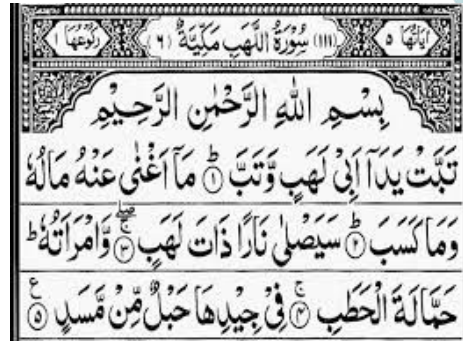 اٰيَاتُهَا ٥ (١١١) سُوْرَةُ اللَّهَبِ مَكِّيَّةٌ (٦) رُكُوْعُهَا ١
بِسْمِ اللهِ الرَّحْمٰنِ الرَّحِيْمِ
تَبَّتْ يَدَاۤ اَبِيْ لَهَبٍ وَّتَبَّ ؕ۝١ مَاۤ اَغْنٰى عَنْهُ مَالُهٗ
وَمَا كَسَبَ ؕ۝٢ سَيَصْلٰى نَارًا ذَاتَ لَهَبٍ ۚۖ۝٣ وَّامْرَاَتُهٗ ؕ
حَمَّالَةَ الْحَطَبِ ۚ۝٤ فِيْ جِيْدِهَا حَبْلٌ مِّنْ مَّسَدٍ ۝٥ ع